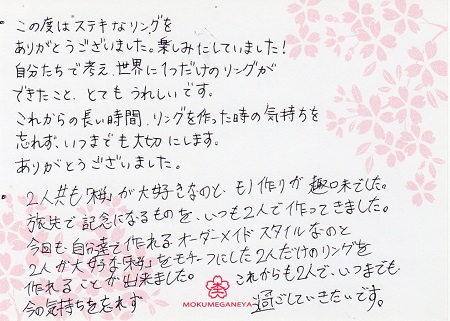 この度はステキなリングを
ありがとうございました。楽しみにしていました!
自分たちで考え、世界に1つだけのリングが
できたこと、とても うれしいです。
これからの長い時間、リングを作った時の気持ちを
忘れず、いつまでも大切にします。
ありがとうございました。
2人共も「桜」が大好きなのと、モノ作りが趣味でした。
旅先で記念になるものを、いつも2人で作ってきました。
今回も、自分達で作れるオーダーメイドスタイルなのと
2人が大好きな「桜」をモチーフにした2人だけのリングを
作れることが出来ました。 これからも2人で、いつまでも
今の気持ちを忘れず 過ごしていきたいです。
MOKUMEGANEYA